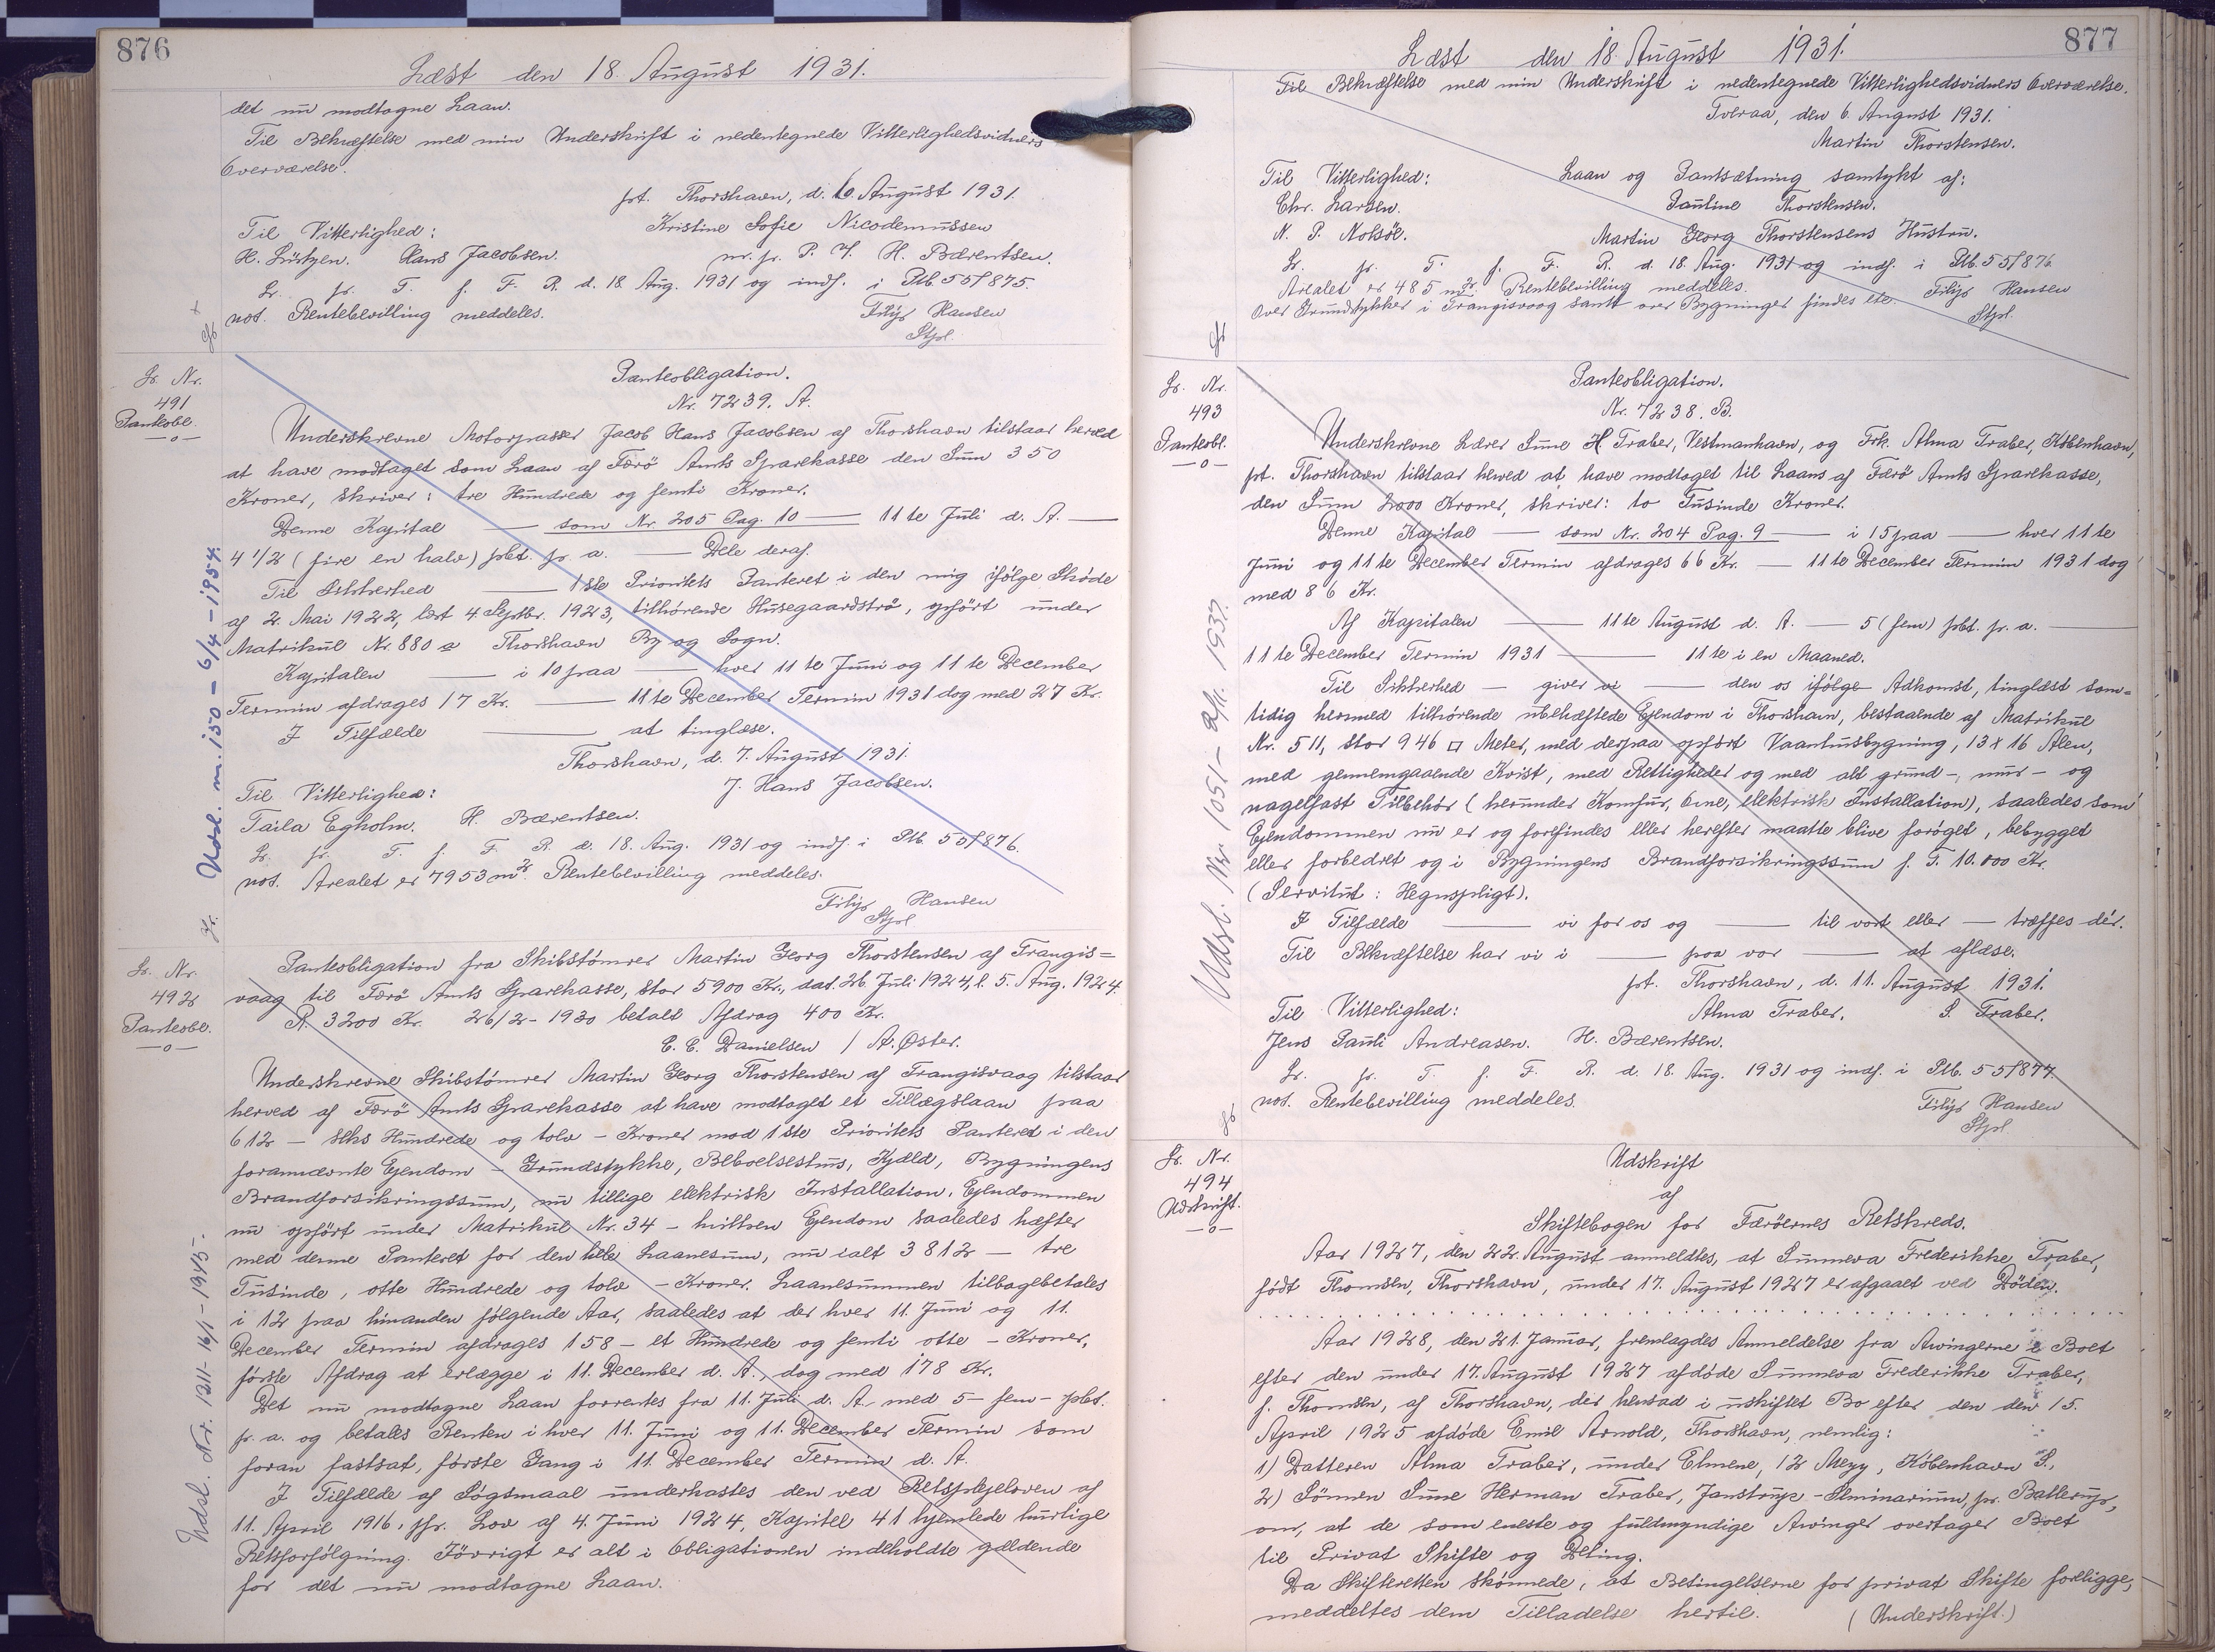 876
Læst den 18. August 1931.
det nu modtagne Laan.
Til Bekræftelse med min Underskrift i nedentegnede Vitterlighedsvidners
Overværelse.
pt. Thorshavn, d. 6. August 1931.
Til Vitterlighed: Kristine Sofie Nicodemussen
H. Lützen. Hans Jacobsen. m. p. P. H. Bærentsen.
Lr. pr. T. f. F. R. d. 18. Aug. 1931 og indf. i Ptb. 55/875.
not. Rentebevilling meddeles. Filip Hansen
Stpl.
Lr. Nr.
491
Panteobl.
Panteobligation.
Nr. 7239. A.
Underskrevne Motorpasser Jacob Hans Jacobsen af Thorshavn tilstaar herved
at have modtaget som Laan af Færö Amts Sparekasse den Sum 350
Kroner, skriver: tre Hundrede og femti Kroner.
Denne Kapital — som Nr. 205 Pag. 10 — 11te Juli d. A. —
4 1/2 (fire en halv) pct. p. a. — Dele deraf.
Til Sikkerhed — 1ste Prioritets Panteret i den mig ifølge Skøde
af 2. Mai 1922, læst 4. Septbr. 1923, tilhørende Husegaardströ, opført under
Matrikul Nr. 880 a Thorshavn By og Sogn.
Kapitalen — i 10 paa — hver 11te Juni og 11te December
Termin afdrages 17 Kr. — 11te December Termin 1931 dog med 27 Kr.
I Tilfælde — at tinglæse.
Thorshavn, d. 7. August 1931.
Til Vitterlighed: J. Hans Jacobsen.
Taila Egholm. H. Bærentsen.
Lr. pr. T. f. F. R. d. 18. Aug. 1931 og indf. i Ptb. 55/876.
not. Arealet er 7953 m2. Rentebevilling meddeles.
Filip Hansen
Stpl
Udsl. m. 150 – 6/4 – 1954.
Lr. Nr.
492
Panteobl.
Panteobligation fra Skibstømrer Martin Georg Thorstensen af Trangis=
vaag til Færö Amts Sparekasse, stor 5900 Kr., dat. 26. Juli 1924, l. 5. Aug. 1924.
R. 3200 Kr. 26/2 - 1930 betalt Afdrag 400 Kr.
E. E. Danielsen / A. Øster.
Underskrevne Skibstømrer Martin Georg Thorstensen af Trangisvaag tilstaar
herved af Færö Amts Sparekasse at have modtaget et Tillægslaan paa
612 — seks Hundrede og tolv – Kroner mod 1ste Prioritets Panteret i den
forannævnte Ejendom – Grundstykke, Beboelseshus, Kjæld, Bygningens
Brandforsikringssum, nu tillige elektrisk Installation. Ejendommen
nu opført under Matrikul Nr. 34 – hvilken Ejendom saaledes hæfter
med denne Panteret for den hele Laanesum, nu ialt 3812 — tre
Tusinde, otte Hundrede og tolv – Kroner. Laanesummen tilbagebetales
i 12 paa hinanden følgende Aar, saaledes at der hver 11. Juni og 11.
December Termin afdrages 158 – et Hundrede og femti otte – Kroner,
første Afdrag at erlægge i 11. December d. A., dog med 178 Kr.
Det nu modtagne Laan forrentes fra 11. Juli d. A. med 5 – fem – pct.
p. a. og betales Renten i hver 11. Juni og 11. December Termin som
foran fastsat, første Gang i 11. December Termin d. A.
I Tilfælde af Søgsmaal underkastes den ved Retsplejeloven af
11. April 1916, jfr. Lov af 4. Juni 1924, Kapitel 41 hjemlede hurtige
Retsforfølgning. Iövrigt er alt i Obligationen indeholdte gældende
for det nu modtagne Laan.
Udsl. Nr. 1211 - 16/1 - 1945.
877
Læst den 18. August 1931.
Til Bekræftelse med min Underskrift i nedentegnede Vitterlighedsvidners Overværelse.
Tveraa, den 6. August 1931.
Martin Thorstensen.
Til Vitterlighed: Laan og Pantsætning samtykt af:
Chr. Larsen. Pauline Thorstensen.
N. P. Nolsöe. Martin Georg Thorstensens Hustru.
Lr. pr. T. f. F. R. d. 18. Aug. 1931 og indf. i Ptb. 55/876
Arealet er 485 m2. Rentebevilling meddeles. Filip Hansen
Over Grundstykker i Trangisvaag samt over Bygninger findes etc. Stpl.
Lr. Nr.
493
Panteobl.
Panteobligation.
Nr. 7238. B.
Underskrevne Lærer Sune H Traber, Vestmanhavn, og Frk. Alma Traber, København,
pt. Thorshavn tilstaar herved at have modtaget til Laans af Færö Amts Sparekasse,
den Sum 2000 Kroner, skriver: to Tusinde Kroner.
Denne Kapital — som Nr. 204 Pag. 9 — i 15 paa — hver 11te
Juni og 11te December Termin afdrages 66 Kr. — 11te December Termin 1931 dog
med 86 Kr.
Af Kapitalen — 11te August d. A. — 5 (fem) pct. p. a. —
11te December Termin 1931 — 11te i en Maaned.
Til Sikkerhed — giver vi — den os ifølge Adkomst, tinglæst sam=
tidig hermed tilhørende ubehæftede Ejendom i Thorshavn, bestaaende af Matrikul
Nr. 511, stor 946 □ Meter, med derpaa opført Vaanhusbygning, 13 x 16 Alen,
med gennemgaaende Kvist, med Rettigheder og med alt grund-, mur- og
nagelfast Tilbehør (herunder Komfur, Ovne, elektrisk Installation), saaledes som
Ejendommen nu er og forefindes eller herefter maatte blive forøget, bebygget
eller forbedret og i Bygningens Brandforsikringssum f. T. 10.000 Kr.
(Servitut: Hegnspligt).
I Tilfælde — vi for os og — til vort eller — træffes dér.
Til Bekræftelse har vi i — paa vor — at aflæse.
pt. Thorshavn, d. 11. August 1931.
Til Vitterlighed: Alma Traber. S. Traber.
Jens Pauli Andreasen. H. Bærentsen.
Lr. pr. T. f. F. R. d. 18. Aug. 1931 og indf. i Ptb. 55/877.
not. Rentebevilling meddeles. Filip Hansen
Stpl
Udsl. Nr. 1051 - 2/11 1937.
Lr. Nr.
494
Udskrift.
Udskrift
af
Skiftebogen for Færöernes Retskreds.
Aar 1927, den 22. August anmeldtes, at Sunneva Frederikke Traber,
født Thomsen, Thorshavn, under 17. August 1927 er afgaaet ved Døden.
Aar 1928, den 21. Januar, fremlagdes Anmeldelse fra Arvingerne i Boet
efter den under 17. August 1927 afdøde Sunneva Frederikke Traber,
f. Thomsen, af Thorshavn, der hensad i uskiftet Bo efter den den 15.
April 1925 afdøde Emil Arnold, Thorshavn, nemlig:
1) Datteren Alma Traber, under Elmene, 12 Mezz, København S.,
2) Sønnen Sune Herman Traber, Janstrup - Seminarium, pr. Ballerup,
om, at de som eneste og fuldmyndige Arvinger overtager Boet
til Privat Skifte og Deling.
Da Skifteretten skønnede, at Betingelserne for privat Skifte foreligge,
meddeltes dem Tilladelse hertil. (Underskrift.)